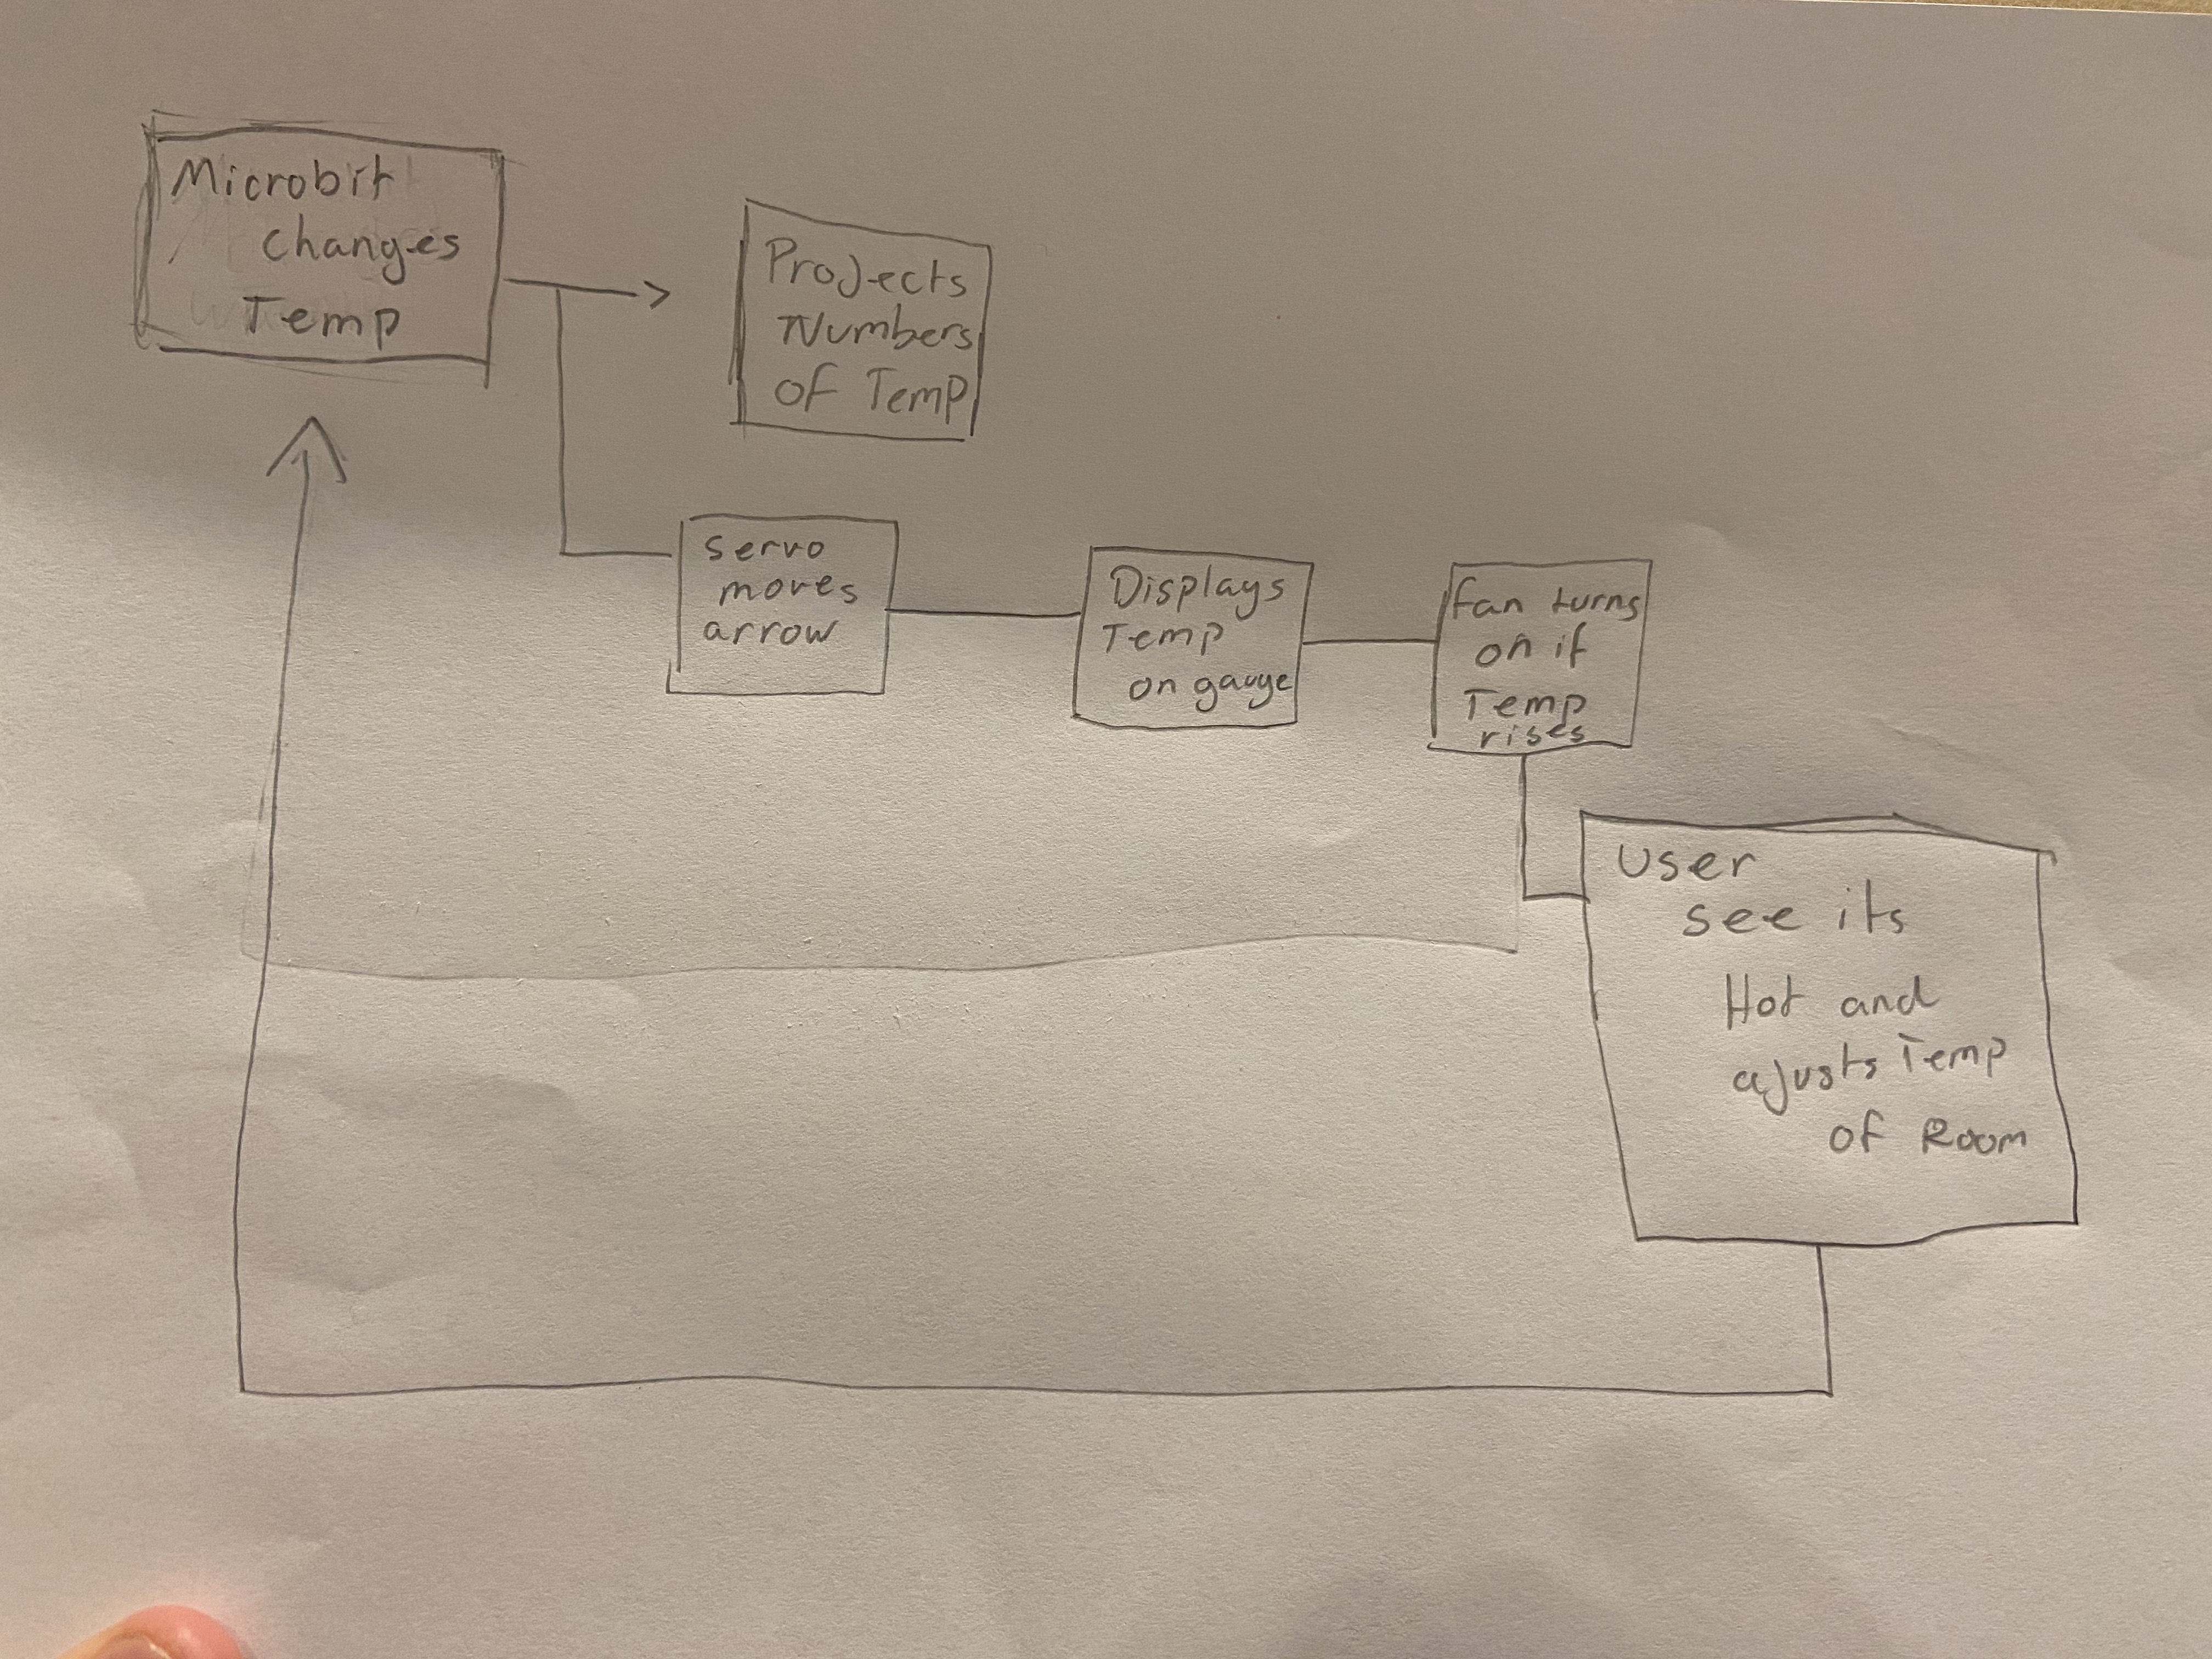 Microbit
changes
Temp
Projects
Numbers
of Temp
servo
moves
arrow
Displays
Temp
on gauge
fan turns
on if
Temp
rises
User
see its
Hot and
ajusts Temp
of Room